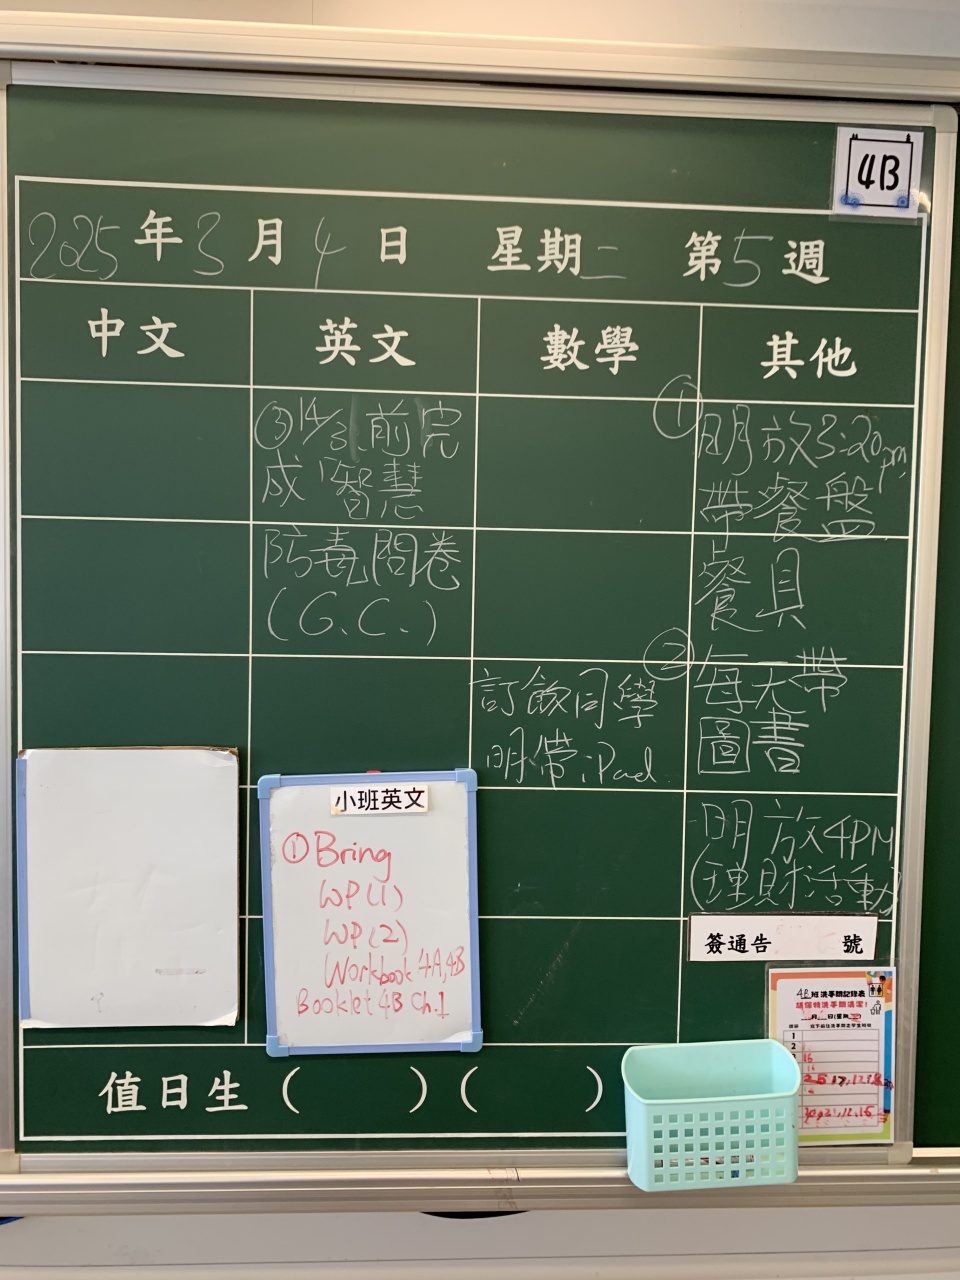 4B
2025年3月4日 星期二 第5週
中文 英文 數學 其他
③14/3前完
成「智慧
防毒問卷
(G.C.)
訂飯同學
明帶iPad
①明放3:20pm
帶餐盤
餐具
②每天帶
圖書
明放4PM
(理財活動)
簽通告 號
小班英文
①Bring
WP(1)
WP(2)
Workbook 4A,4B
Booklet 4B Ch.1
4B班洗手間記錄表
請保持洗手間清潔!
1
2
值日生 ( ) ( )